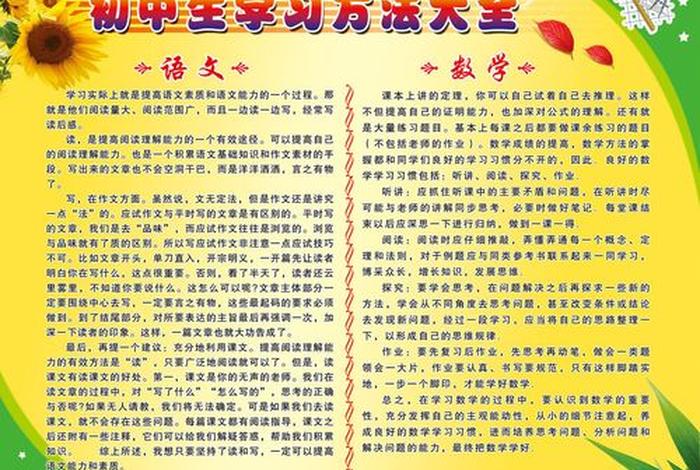 初中生学习方法大全
语文
学习实际上就是提高语文素质和语文能力的一个过程。那
就是他们阅读量大、阅读范围广，而且一边读一边写，经常写
读后感。
读，是提高阅读理解能力的一个有效途径。可以提高自己
的阅读理解能力。也是一个积累语文基础知识和作文素材的手
段。写出来的文章也不会空洞干巴，而是洋洋洒洒，言之有物
了。
写，在作文方面。虽然说，文无定法，但是作文还是讲究
一点“法”的。应试作文与平时写的文章是有区别的。平时写
的文章，我们是去“品味”，而应试作文往往是浏览的。浏览
与品味就有了质的区别。所以写应试作文非注意一点应试技巧
不可。比如文章开头，单刀直入，开宗明义，一开篇先让读者
明白你在写什么，这点很重要。否则，看了半天了，读者还云
里雾里，不知道你要说什么。这怎么可以呢?文章主体部分一
定要围绕中心去写，一定要言之有物，这些最起码的要求必须
做到。到了结尾部分，对所要表达的主旨最后再强调一次，加
深一下读者的印象。这样，一篇文章也就大功告成了。
最后，再提一个建议：充分地利用课文。提高阅读理解能
力的有效方法是“读”，只要广泛地阅读就可以了。但是，读
课文有读课文的好处。第一，课文是你的无声的老师。我们在
读文章的过程中，对“写了什么”“怎么写的”，思考的正确
与否呢?如果无人请教，我们将无法确定。可是如果我们去读
课文，就不会存在这些问题。每篇课文都有阅读指导，课文之
后还附有一些注释，它们可以给我们解疑答惑，帮助我们积累
知识。 综上所述，我想只要坚持了读和写，一定可以提高
语文能力和素质。
数学
课本上讲的定理，你可以自己试着自己去推理。这样
不但提高自己的证明能力，也加深对公式的理解。还有就
是大量练习题目。基本上每课之后都要做课余练习的题目
（不包括老师的作业）。数学成绩的提高，数学方法的掌
握都和同学们良好的学习习惯分不开的，因此．良好的数
学学习习惯包括：听讲、阅读、探究、作业．
听讲：应抓住听课中的主要矛盾和问题，在听讲时尽
可能与老师的讲解同步思考，必要时做好笔记．每堂课结
束以后应深思一下进行归纳，做到一课一得．
阅读：阅读时应仔细推敲，弄懂弄通每一个概念、定
理和法则，对于例题应与同类参考书联系起来一同学习，
博采众长，增长知识，发展思维．
探究：要学会思考，在问题解决之后再探求一些新的
方法，学会从不同角度去思考问题，甚至改变条件或结论
去发现新问题，经过一段学习，应当将自己的思路整理一
下，以形成自己的思维规律．
作业：要先复习后作业，先思考再动笔，做会一类题
领会一大片，作业要认真、书写要规范，只有这样脚踏实
地，一步一个脚印，才能学好数学．
总之，在学习数学的过程中，要认识到数学的重要
性，充分发挥自己的主观能动性，从小的细节注意起，养
成良好的数学学习习惯，进而培养思考问题、分析问题和
解决问题的能力，最终把数学学好．